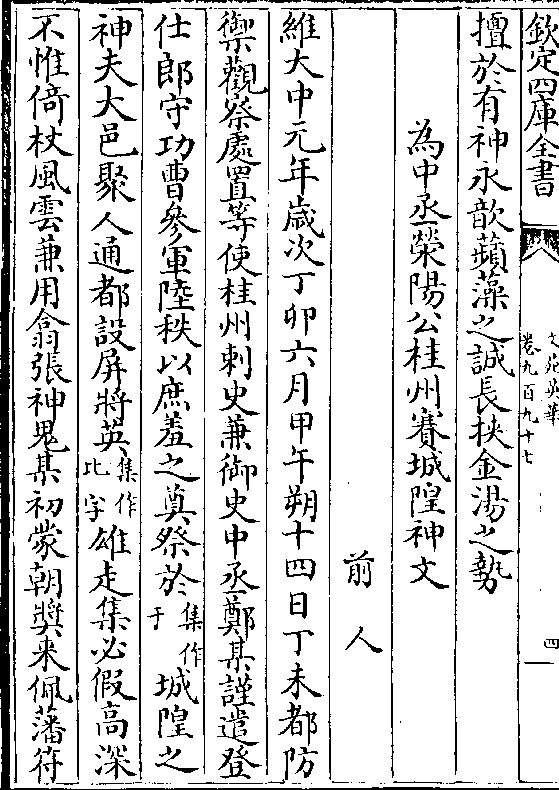 欽定四庫全書
文苑英華
卷九百九十七
四
擅於有神永歆蘋藻之誠長挾金湯之勢
為中丞滎陽公桂州賽城隍神文
前人
維大中元年歲次丁卯六月甲午朔十四日丁未都防
禦觀察處置等使桂州刺史兼御史中丞鄭某謹遣登
仕郎守功曹參軍陸秩以庶羞之奠祭於集作于城隍之
神夫大邑聚人通都設屏將英集作比字雄走集必假高深
不惟倚杖風雲兼用翕張神鬼某初蒙朝獎来佩藩符